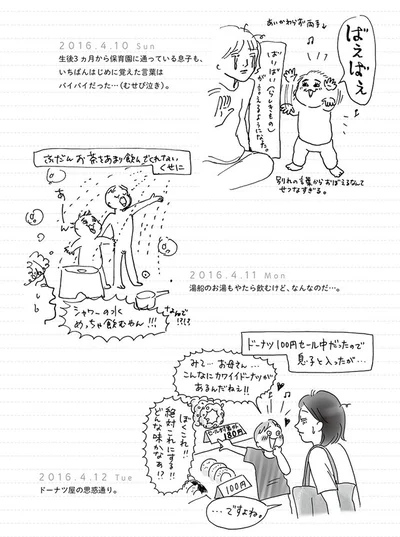 2016.4.10 Sun
生後3ヵ月から保育園に通っている息子も、
いちばんはじめに覚えた言葉は
バイバイだった…（むせび泣き）。
あいかわらずお両手↓
ばぇばぇ
ばいばい（らしきもの）
が言えるようになった。
別れの言葉からおぼえるなんて
せつなすぎる。
ふだんお茶をあまり飲んでくれない
くせに
あーん
シャワーの水
めっちゃ飲むやん!!!
なんで
!?!?
2016.4.11 Mon
湯船のお湯もやたら飲むけど、なんなのだ…。
ドーナツ100円セール中だったので
息子と入ったが…
みて…お母さん…
こんなにカワイイドーナツが
あるんだねぇ!!
ぼくこれ!!
絶対これにする!!
どんな味かなぁ!?
180円
100円
…ですよね。
2016.4.12 Tue
ドーナツ屋の思惑通り。